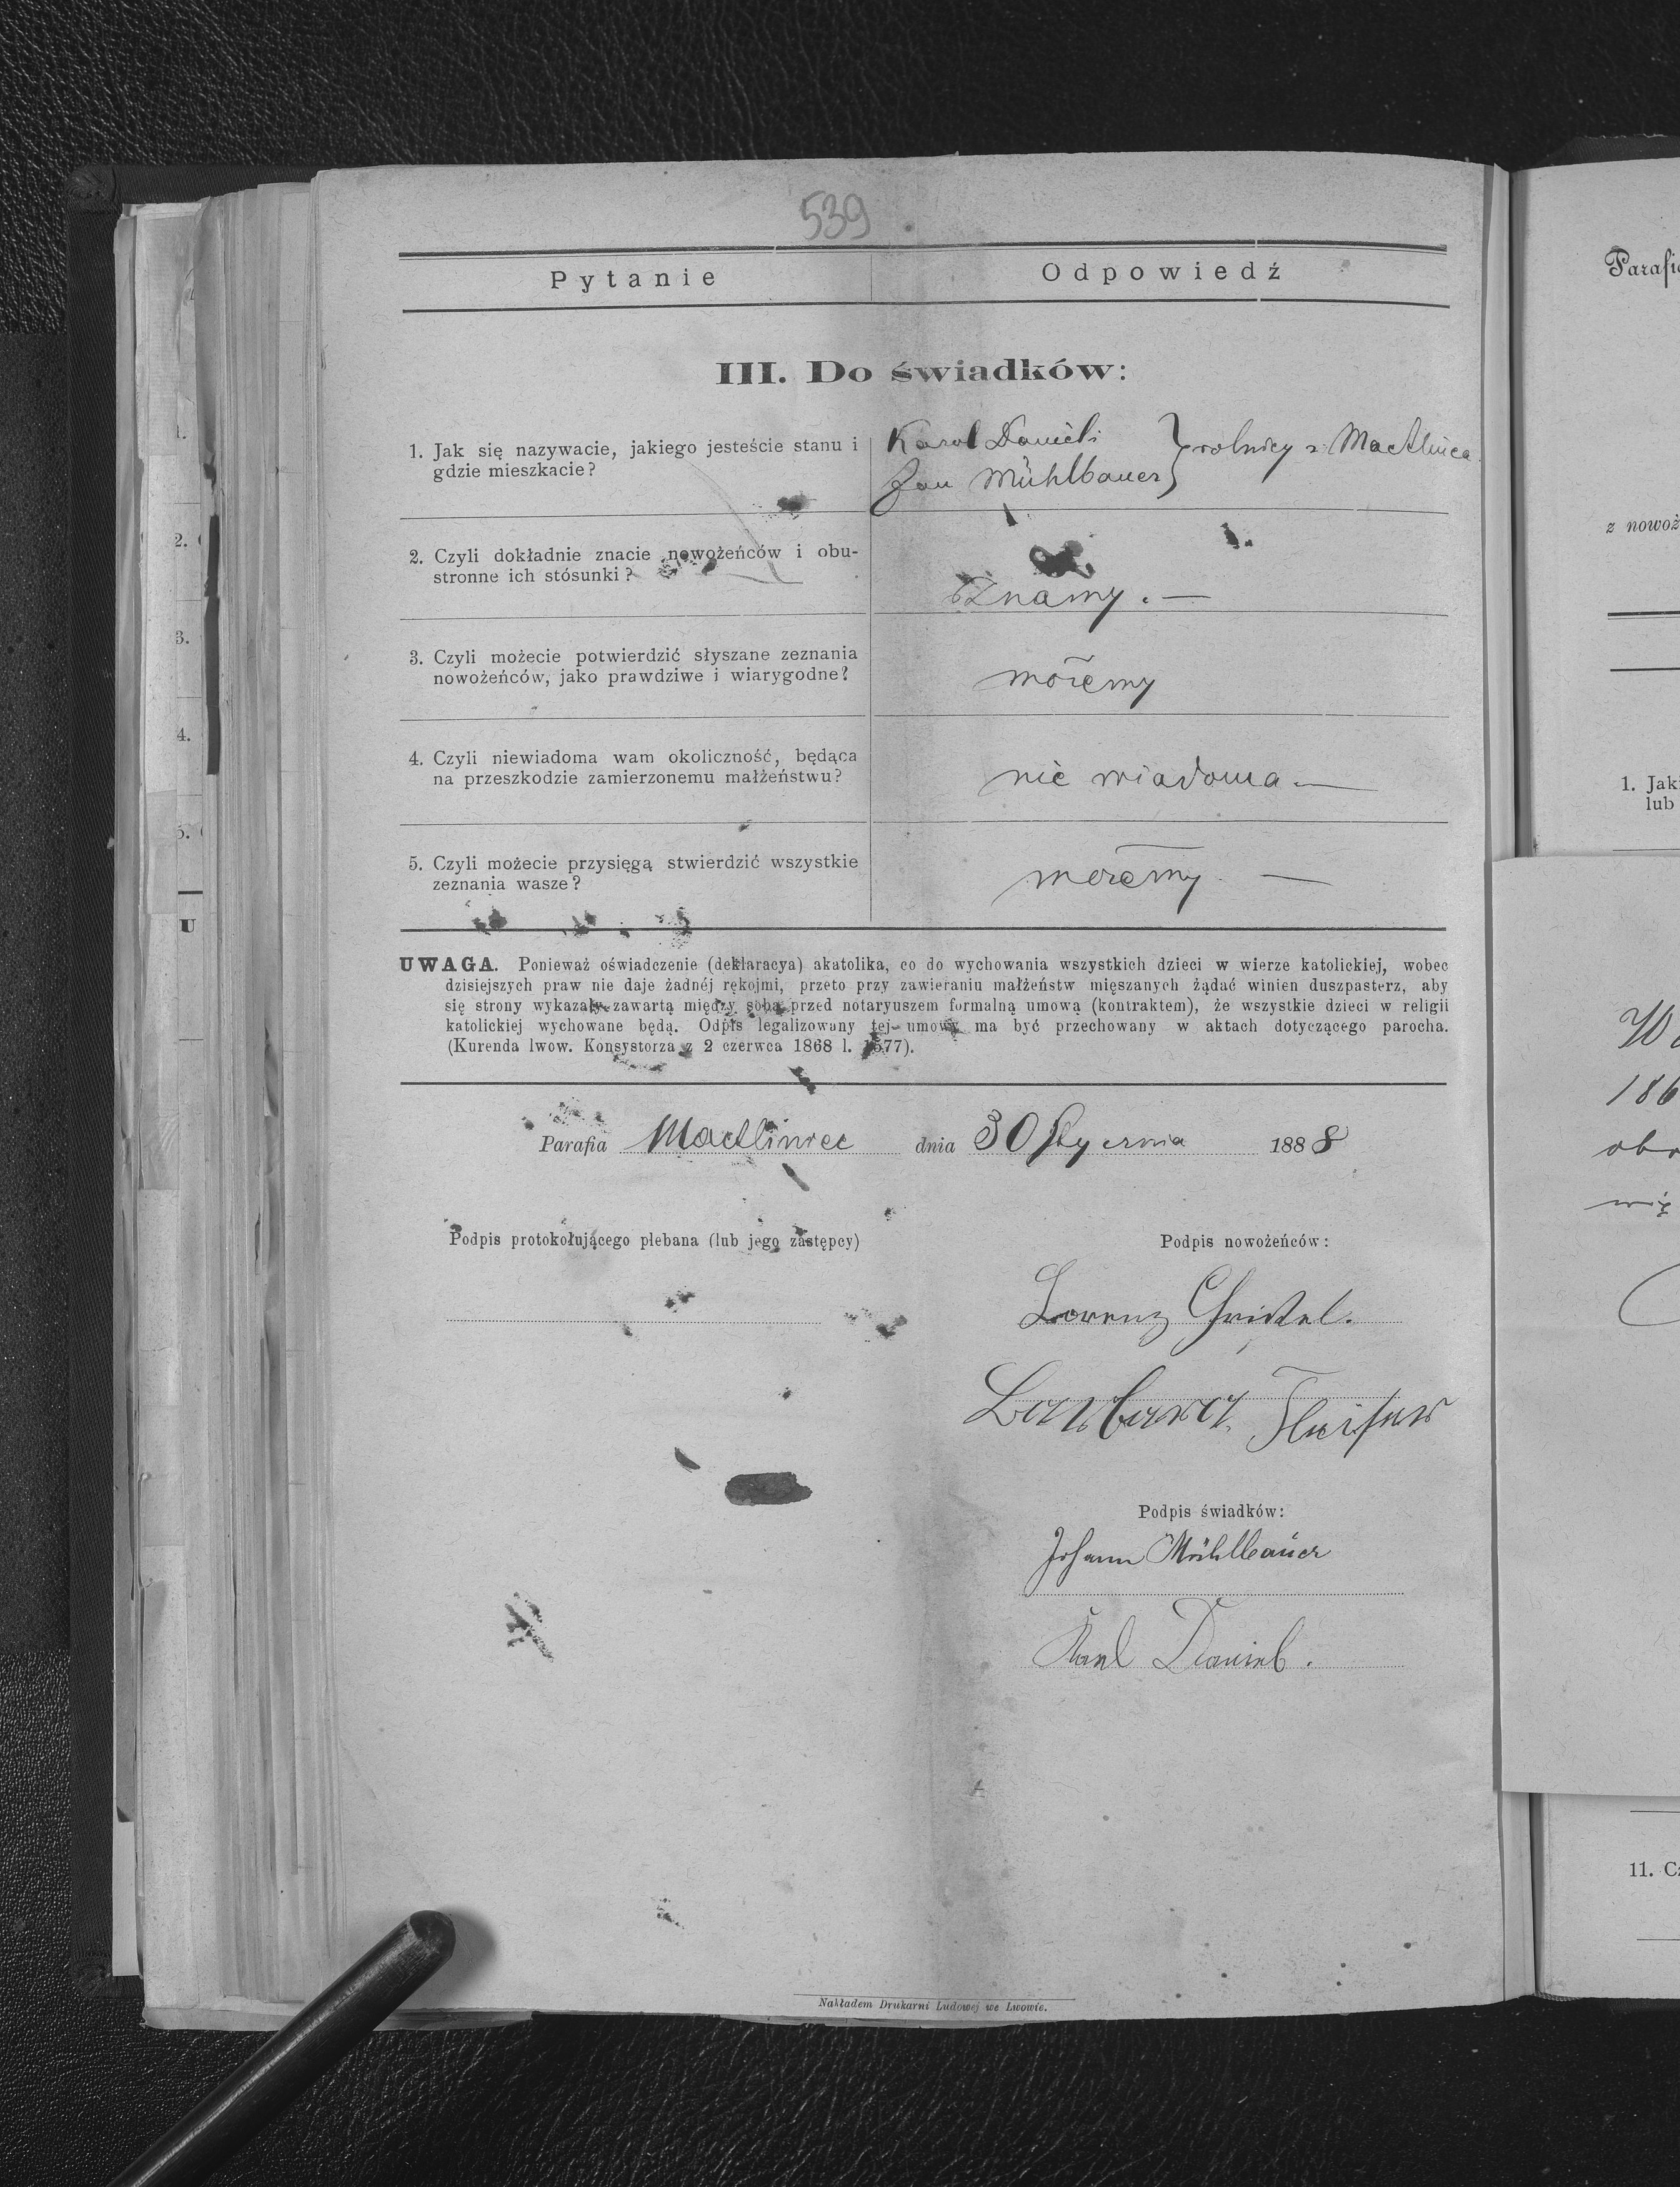 539
Pytanie
Odpowiedź
III. Do świadków:
1. Jak się nazywacie, jakiego jesteście stanu i
gdzie mieszkacie?
Karol Danieli
Jan Mühlbauer
} rolnicy z Machlińca
2. Czyli dokładnie znacie nowożeńców i obu-
stronne ich stósunki?
Znamy. —
3. Czyli możecie potwierdzić słyszane zeznania
nowożeńców, jako prawdziwe i wiarygodne?
możemy
4. Czyli niewiadoma wam okoliczność, będąca
na przeszkodzie zamierzonemu małżeństwu?
nie wiadoma —
5. Czyli możecie przysięgą stwierdzić wszystkie
zeznania wasze?
możemy. —
UWAGA. Ponieważ oświadczenie (deklaracya) akatolika, co do wychowania wszystkich dzieci w wierze katolickiej, wobec
dzisiejszych praw nie daje żadnéj rękojmi, przeto przy zawieraniu małżeństw mięszanych żądać winien duszpasterz, aby
się strony wykazały zawartą między sobą przed notaryuszem formalną umową (kontraktem), że wszystkie dzieci w religii
katolickiej wychowane będą. Odpis legalizowany tej umowy ma być przechowany w aktach dotyczącego parocha.
(Kurenda lwow. Konsystorza z 2 czerwca 1868 l. 1577).
Parafia Machliniec dnia 30 Stycznia 1888
Podpis protokołującego plebana (lub jego zastępcy)
Podpis nowożeńców:
Lorenz Christel.
Barbara Fleißner
Podpis świadków:
Johann Mühlbauer
Karl Daniel.
Nakładem Drukarni Ludowej we Lwowie.
2.
3.
4.
5.
U
z nowoż
1. Jak
lub
W
186
obr
11. C